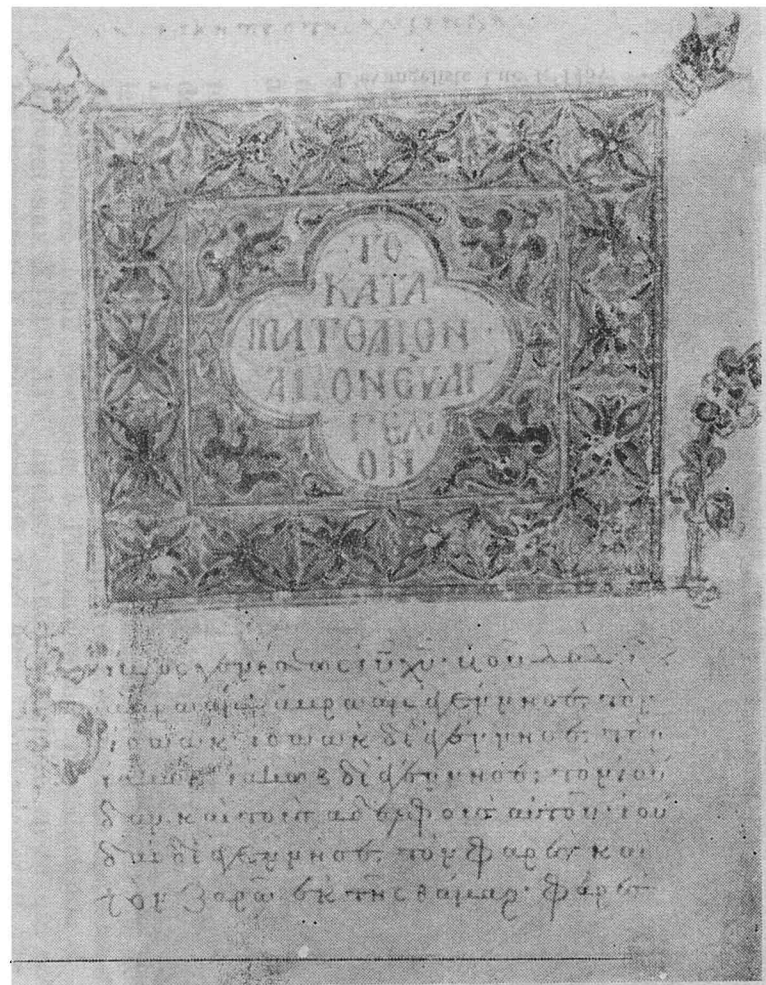 ΤΟ
ΚΑΤΑ
ΜΑΤΘΑΙΟΝ
ΑΓΙΟΝ ΕΥΑΓ
ΓΕΛΙ
ΟΝ
γενέσεως ἰῦ χῦ υἱοῦ
ἀβραὰμ ἐγέννησε τὸν
ἰσαὰκ ἰσαὰκ δὲ ἐγέννησε τὸν
ἰακὼβ ἰακὼβ δὲ ἐγέννησε τὸν ἰού
δαν καὶ τοὺς ἀδελφοὺς αὐτοῦ ἰού
δας δὲ ἐγέννησε τὸν φαρὲς καὶ
τὸν ζαρὰ ἐκ τῆς θάμαρ φαρὲς